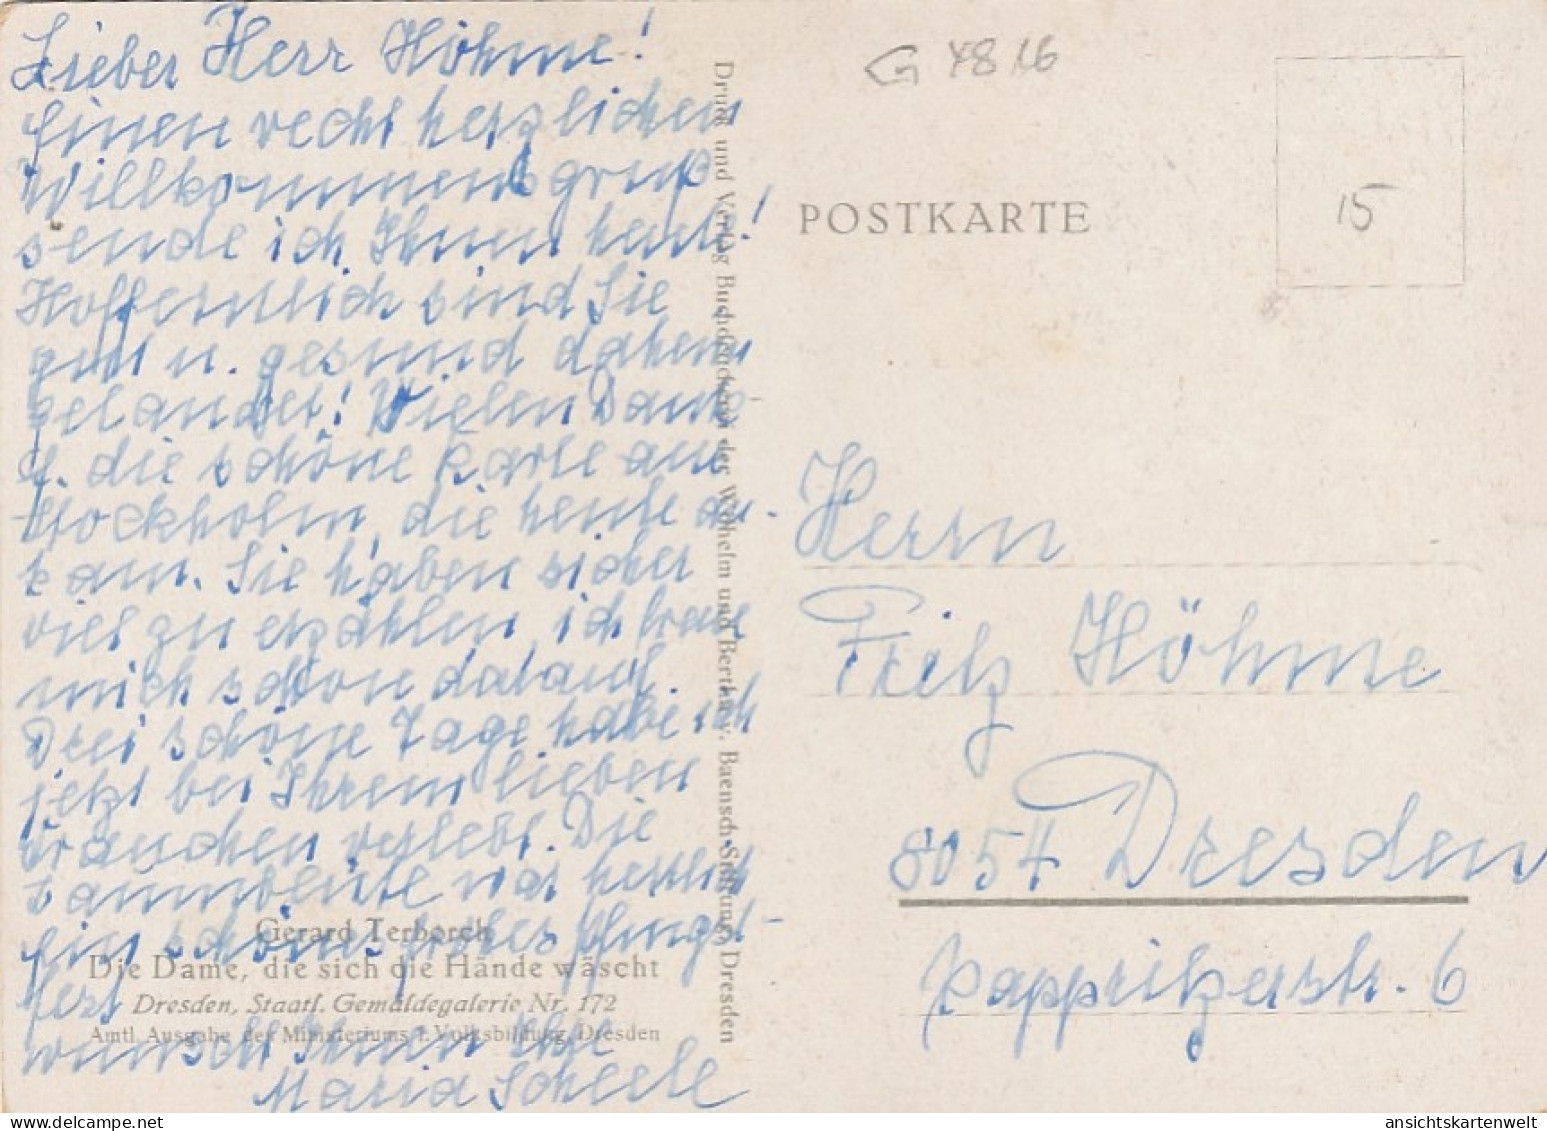 Lieber Herr Höhme!
Einen recht herzlichen
Willkommensgruß
sende ich Ihnen heute!
Hoffentlich sind Sie
gut u. gesund daheim
gelandet! Vielen Dank
f. die schöne Karte aus
Stockholm, die heute an-
kam. Sie haben sicher
viel zu erzählen, ich freue
mich schon darauf.
Drei schöne Tage habe ich
jetzt bei Ihrem lieben
verlebt. Die
war herrlich
Ein schönes frohes Pfingst-
fest
wünscht Ihnen Ihre
Maria Scheele
Gerard Terborch
Die Dame, die sich die Hände wäscht
Dresden, Staatl. Gemäldegalerie Nr. 172
Amtl. Ausgabe des Ministeriums f. Volksbildung, Dresden
Druck und Verlag Buchdruckerei der Wilhelm und Bertha v. Baensch Stiftung, Dresden
G 4816
POSTKARTE
15
Herrn
Fritz Höhme
8054 Dresden
Pappritzerstr. 6
ansichtskartenwelt